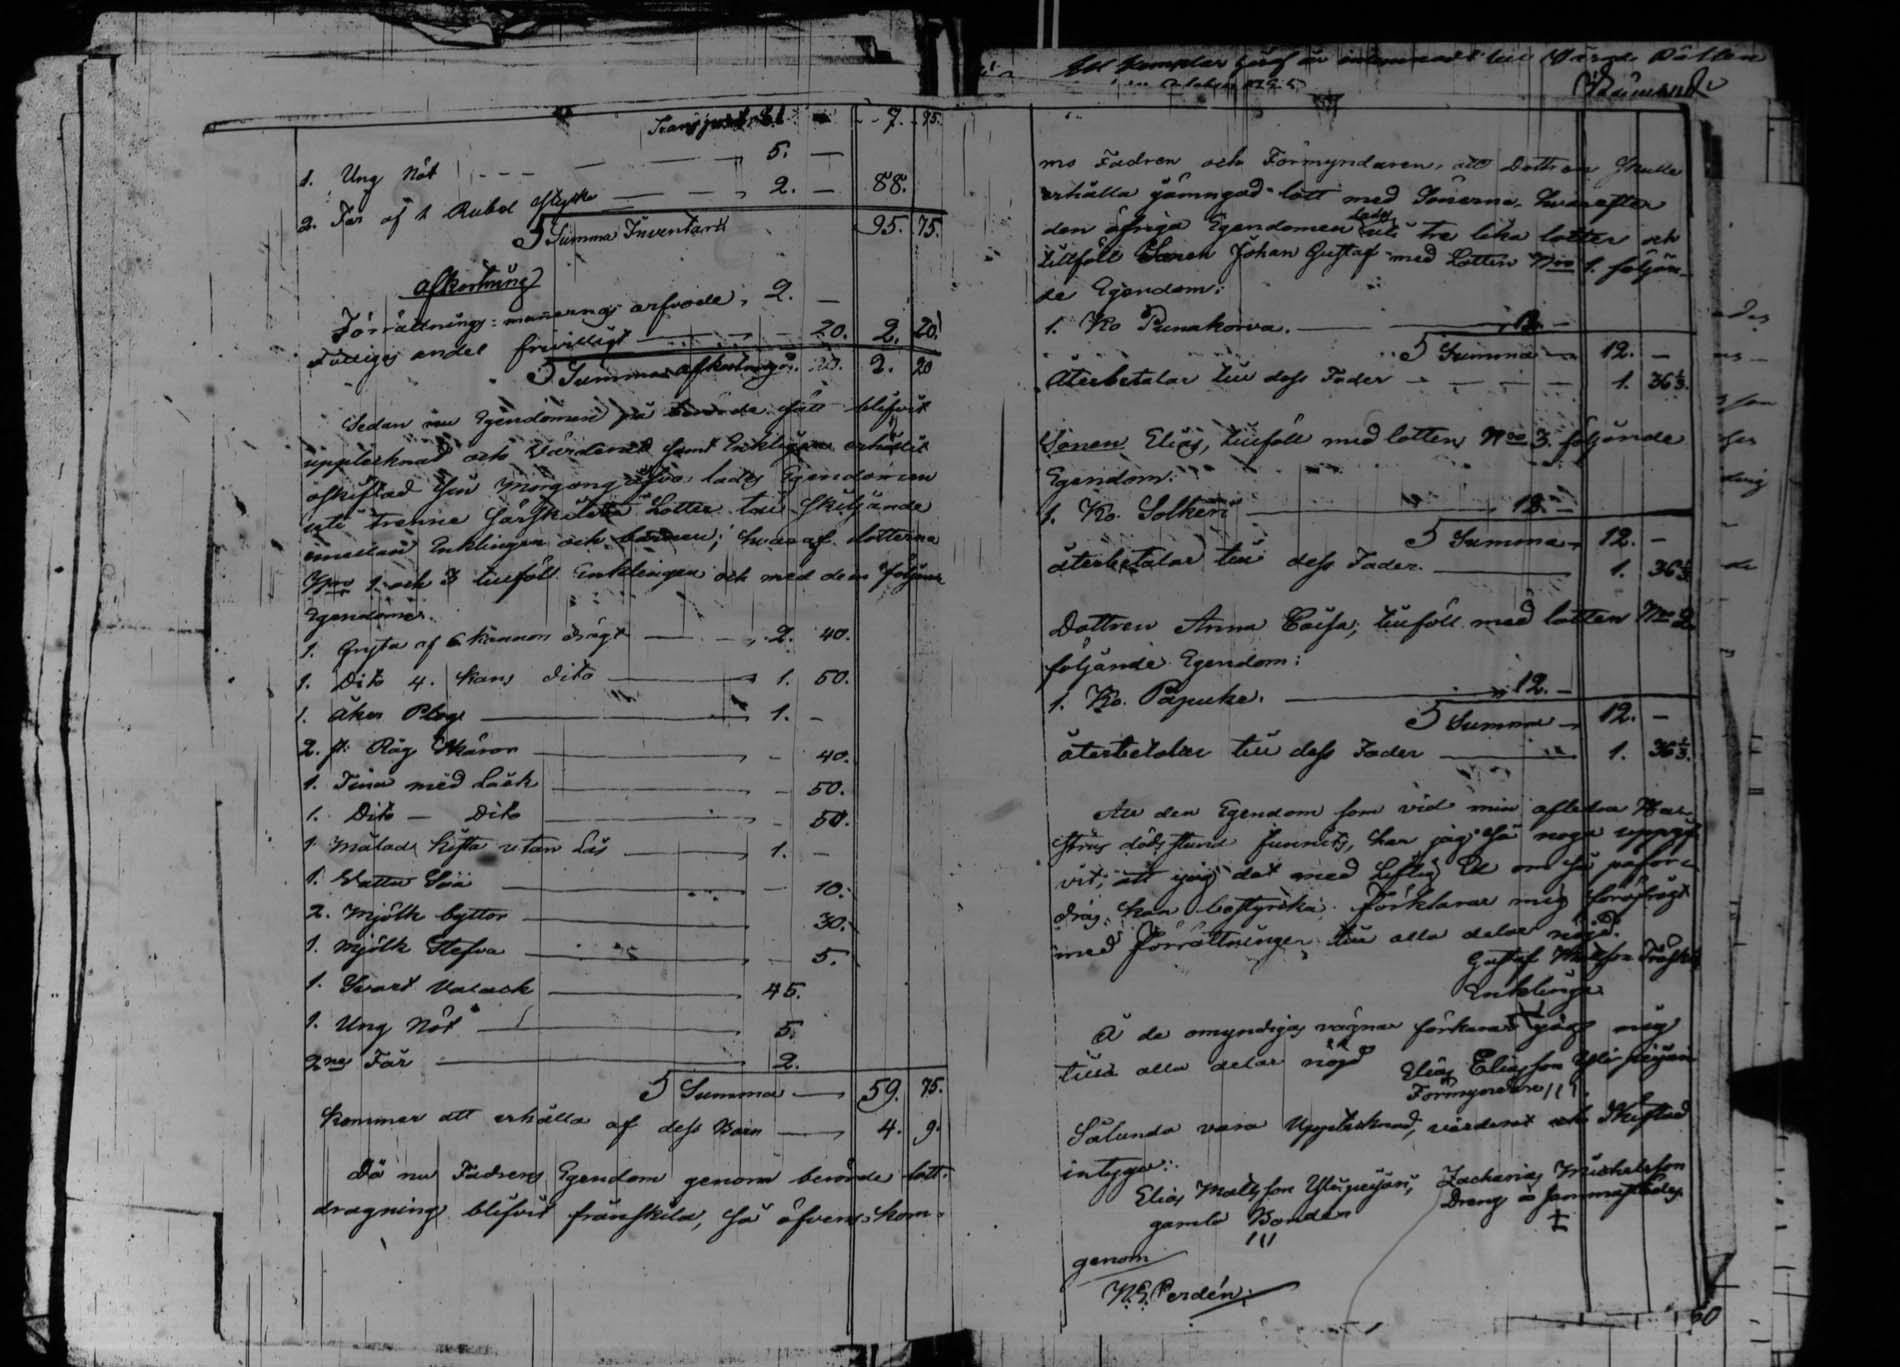 Transport 7. 75.
1. Ung Nöt 5. —
2. Får af 1 Rubel stycke 2. — 88.
Summa Inventarii 95. 75.
afkortning
Förrättnings-mannernas arfvode, 2. —
Fattiges andel frivilligt 20. 2. 20.
Summa afkortningar 20. 2. 20
Sedan nu Egendomen på berörde sätt blifvit
upptecknad och Värderad samt Enklingen erhållit
afskiftad sin Morgongåfva lades Egendomen
uti trenne särskilta Lotter till skiljande
emellan Enklingen och barnen; hvaraf lotterna
Nro 1 och 3 tillföll Enklingen och med dem följande
Egendom.
1. Gryta af 6 kannors drägt 2. 40.
1. Dito 4. kans dito 1. 50.
1. åker Plog 1. —
2. st. Råg Skäror — 40.
1. Tina med Låck — 50.
1. Dito — Dito — 50.
1. Målad kista utan Lås 1. —
1. Vattu Såå — 10.
2. Mjölk byttor 30.
1. Mjölk Stefva — 5.
1. Svart Valack 45.
1. Ung Nöt 5.
2ne Får 2.
Summa 59. 75.
kommer att erhålla af dess Barn 4. 9.
Då nu Fadrens Egendom genom berörde lott-
dragning blifvit frånskild, så öfverenskom-
Ett Exemplar häraf är inlemnadt till Härads Rätten
mo Fadren och Förmyndaren, att Dottren skulle
erhålla jämngod lott med Sönerna. Hvarefter
den öfriga Egendomen lades uti tre lika lotter och
tillföll Sonen Johan Gustaf med Lotten Nro 1. följan-
de Egendom:
1. Ko Punakorva. 12. —
Summa 12. —
Återbetalar till dess Fader 1. 36 1/3.
Sonen Elias, tillföll med lotten Nro 3. följande
Egendom.
1. Ko. Solkeri 12. —
Summa 12. —
återbetalar till dess Fader. 1. 36 1/3
Dottren Anna Caisa, tillföll med lotten Nro 2
följande Egendom:
1. Ko. Papuke. 12. —
Summa 12. —
återbetalar till dess Fader 1. 36 1/3.
All den Egendom som vid min afledna Hu-
strus dödsstund funnits, har jag så noga uppgif-
vit, att jag det med Liflig Ed om så påfor-
dras kan bestyrka. förklarar mig föröfrigt
med förrättningen till alla delar nöjd.
Gustaf Mattsson Träskelä
Enklinge.
Å de omyndigas vägnar förklarar jag mig
till alla delar nöjd Elias Eliasson Ylipeijari
Förmyndare
Sålunda vara Upptecknad, värderat och Skiftad
intyga:
Elias Mattsson Ylipeijari, Zacharias Michelsson
gamla Bonden Dräng å sammastädes
genom
N. G. Perdén.
60